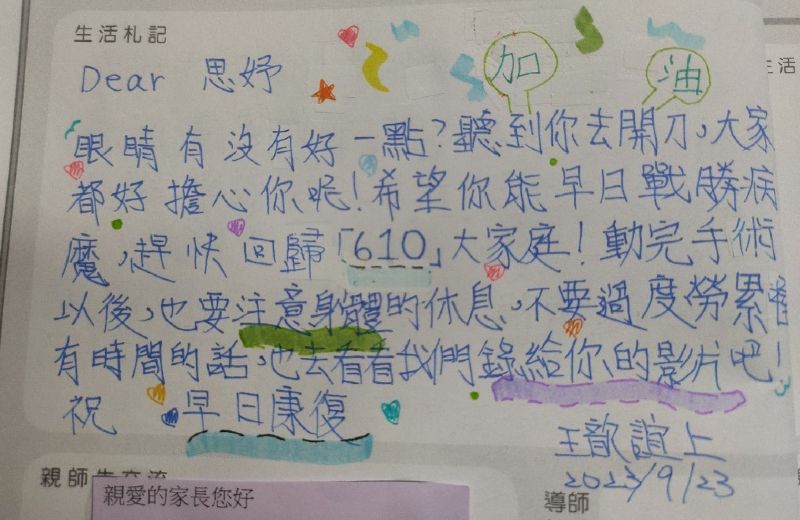 生活札記
生活
加油
Dear 思妤
眼睛有沒有好一點?聽到你去開刀,大家
都好擔心你呢!希望你能早日戰勝病
魔,趕快回歸「610」大家庭!動完手術
以後,也要注意身體的休息,不要過度勞累喔
有時間的話,也去看看我們錄給你的影片吧!
祝 早日康復
王歆誼上
2023/9/23
親師生交流
親愛的家長您好
導師